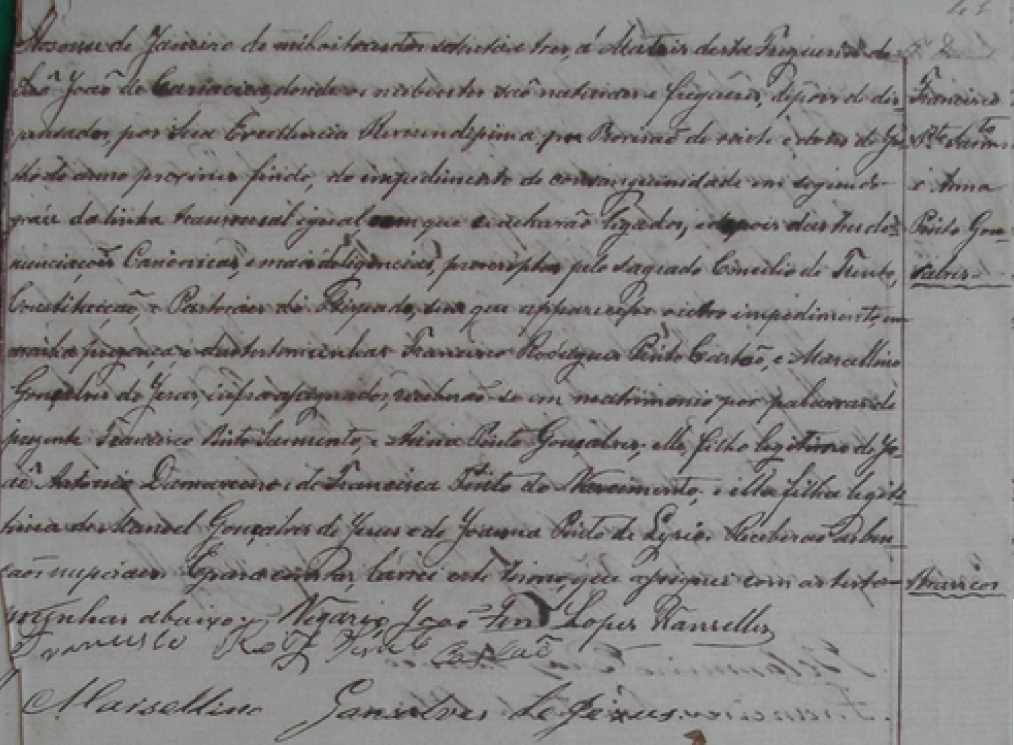 Aos onze de Janeiro de mil oitocentos setenta e tres, á Matriz desta Freguezia de
São João de Cariacica, donde os nubentes são naturaes e freguezes, depois de dis-
pensados, por Sua Excellencia Reverendissima, por Provisão de vinte e de Ju-
nho do anno proximo findo, do impedimento de consanguinidade em segundo
gráu da linha transversal igual, em que se acharão ligados, e depois das tres de-
nunciações Canonicas, e mais deligencias, prescriptas pelo Sagrado Concilio de Trento,
Constituição, e Pastoraes do Bispado, sem que apparecesse outro impedimento, em
minha presença e das testemunhas Francisco Rodrigues Pinto Castão, e Marcellino
Gonçalves de Jesus, infra assignados, receberão-se em matrimonio por palavras de
prezente Francisco Pinto Sarmento, e Anna Pinto Gonçalves, elle filho legitimo de Jo-
ão Antonio Damaceno, e de Francisca Pinto do Nascimento, e ella filha legiti-
tima de Manoel Gonçalves de Jesus e de Joanna Pinto de Receberão as ben-
çãos nupciaes. E para constar, lavrei este termo, que assignei com as teste-
munhas abaixo. Vigario João Lopes Wanzeller
Francisco Roiz Pinto Castão
Maisellino Gonsalves de Jezus.
Francisco
Pto Sarmto
e Anna
Pinto Gon-
salves
Brancos